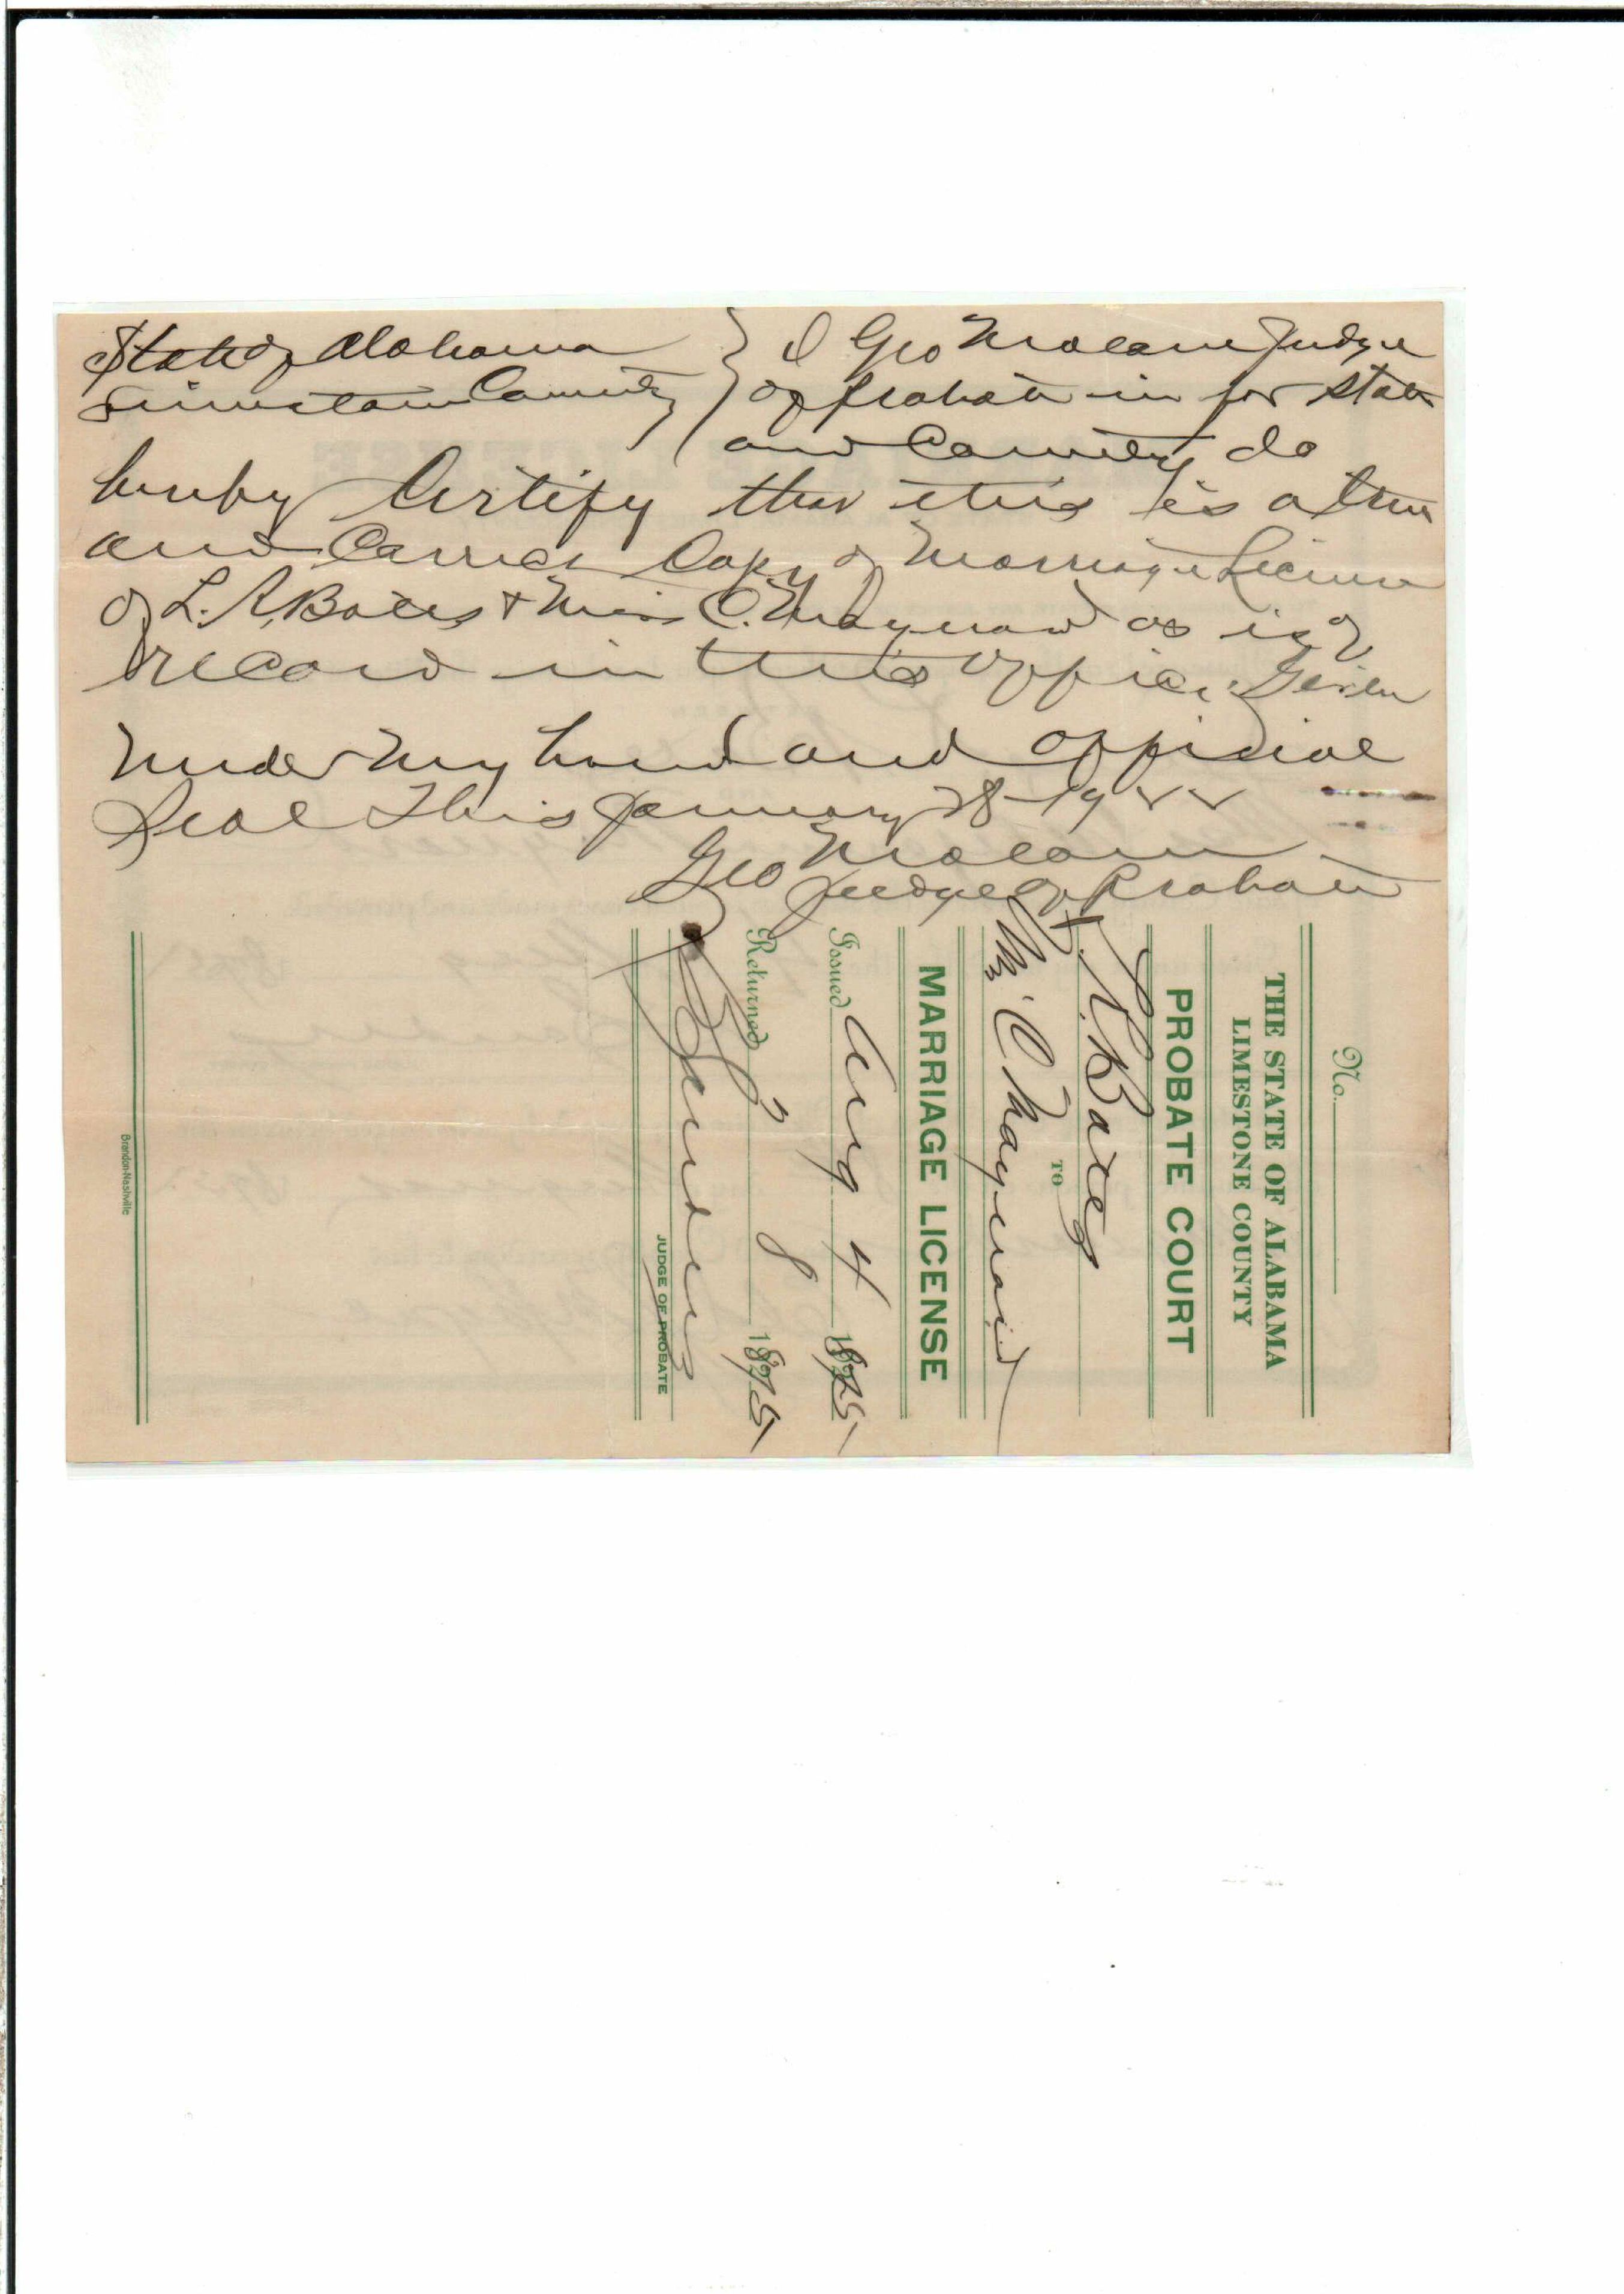 State of Alabama } I Geo Malone Judge
Limestone County } of Probate in for State
and County do
hereby Certify that this is a true
and Correct Copy of Marriage License
of L. A. Bates + Miss C. Maynard as is of
record in this office. Given
under my hand and official
Seal This January 28-1922
Geo Malone
Judge of Probate
No.
THE STATE OF ALABAMA
LIMESTONE COUNTY
PROBATE COURT
L. A. Bates
TO
C Maynard
MARRIAGE LICENSE
Issued Aug 4 1875
Returned " 8 1875
JUDGE OF PROBATE
Brandon-Nashville